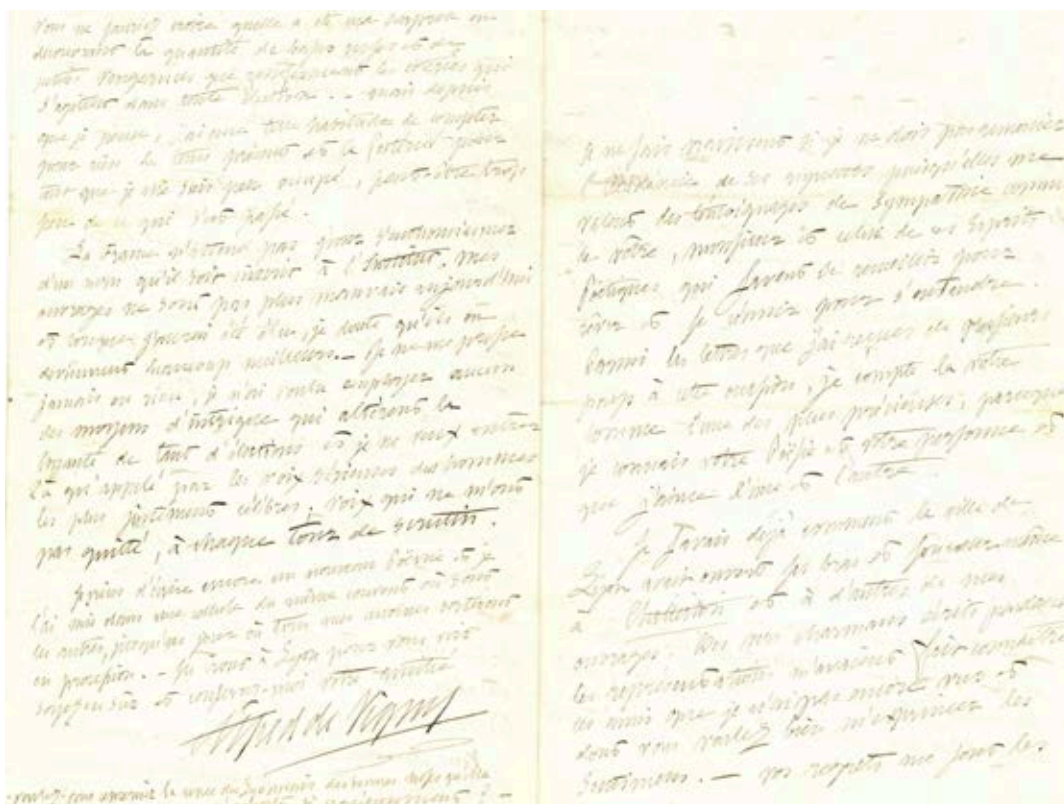 Vous ne sauriez croire quelle a été ma surprise en
découvrant la quantité de basses ruses et de
petites vengeances que renferment les
s'agitent dans toute élection. — mais depuis
que je pense, j'ai une telle habitude de compter
pour rien le temps présent et la postérité pour
tout que je me suis peu occupé, peut-être trop
peu de ce qui s'est passé.
La France n'attend pas pour
d'un nom qu'il soit inscrit à l'Institut. mes
ouvrages ne sont pas plus mauvais aujourd'hui
et lorsque j'aurai été élu, je doute qu'ils en
deviennent beaucoup meilleurs. — Je ne me presse
jamais en rien, je n'ai voulu employer aucun
des moyens d'intrigue qui altèrent la
loyauté de tant d'élections et je ne veux entrer
là qu'appelé par les voix sérieuses des hommes
les plus justement célèbres, voix qui ne m'ont
pas quitté, à chaque tour de scrutin.
Je viens d'écrire encore un nouveau Poëme et je
l'ai mis dans une cellule du même couvent où sont
les autres, jusqu'au jour où tous mes moines sortiront
en procession. — J'irai à Lyon pour vous voir
soyez en sûr et conservez-moi votre amitié
Alfred de Vigny
Je ne sais vraiment si je ne dois pas remercier
l'Académie de ses rigueurs puisqu'elles me
valent des témoignages de sympathie comme
le vôtre, Monsieur et celui de ces Esprits
Poëtiques qui savent se recueillir pour
rêver et se réunir pour s'entendre.
Parmi les lettres que j'ai reçues de plusieurs
pays à cette occasion, je compte la vôtre
comme l'une des plus précieuses, parceque
je connais votre Poësie et votre personne et
que j'aime l'une et l'autre.
Je savais déjà comment la ville de
Lyon avait ouvert ses bras et son cœur même
à Chatterton et à d'autres de mes
ouvrages. charmans écrits pendant
les représentations m'avaient fait connaître
les amis que je n'ai pas encore vus et
dont vous voulez bien m'exprimer les
sentimens. — vos respects me sont les